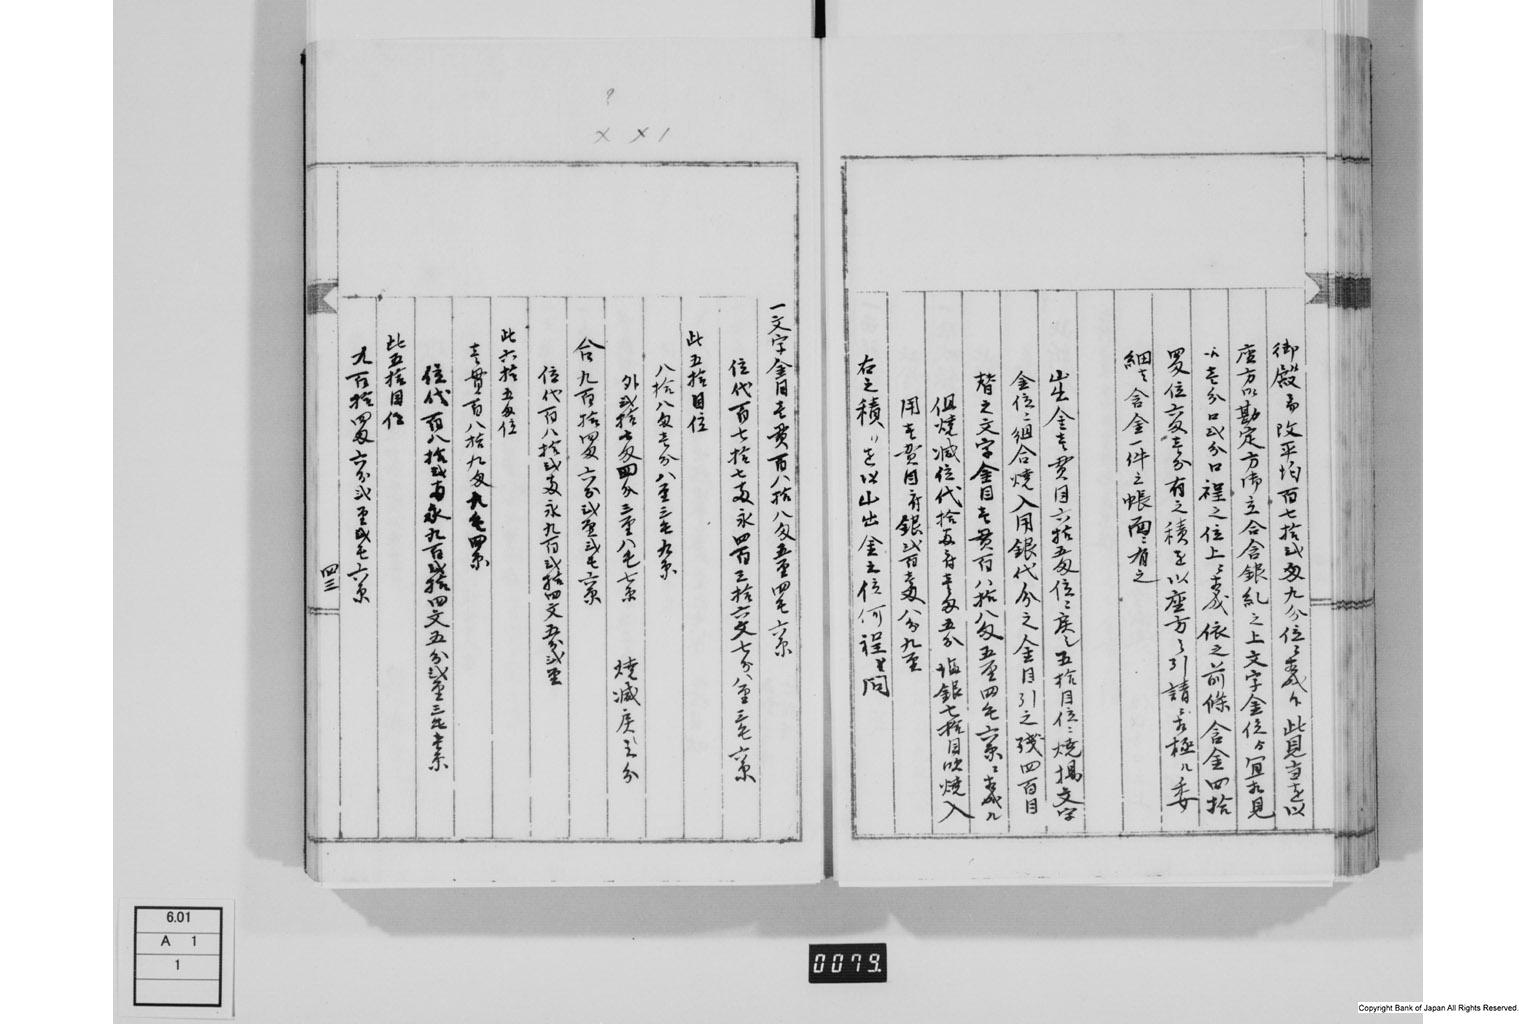 御殿而改平均百七拾弐匁九分位之義ニ付此見当を以
座方御勘定方御立合含銀糺之上文字金位ゟ宜相見
以壱分口弐分口程之位上之義依之前條含金四拾
四位六匁壱分有之積を以座方ゟ引請ニ相極ル委
細は含金一件之帳面ニ有之
山出金壱貫目六拾五匁位ニ戻シ五拾目位ニ焼揚文字
金位ニ組合焼入用銀代分之金目引之残四百目
替之文字金目壱貫百八拾八匁五厘四毛六糸之義ハ
但焼減位代拾両ニ付壱匁五分塩銀七拾目吹焼入
用壱貫目ニ付銀弐百壱匁八分九厘
右之積りを以山出金之位何程と問
一文字金目壱貫百八拾八匁五厘四毛六糸
位代百七拾七両永四百三拾六文七分八厘三毛六糸
此五拾目位
八拾八匁壱分八厘三毛九糸
外弐拾七匁四分三厘八毛七糸 焼減戻シ分
合九百拾四匁六分弐厘弐毛六糸
位代百八拾弐両永九百弐拾四文五分弐厘
此六拾五匁位
壱貫百八拾九匁九毛四糸
位代百八拾弐両永九百弐拾四文五分弐厘三毛壱糸
此五拾目位
九百拾四匁六分弐厘弐毛六糸
四三
?
x x 1
6.01
A 1
1
0079.
Copyright Bank of Japan All Rights Reserved.